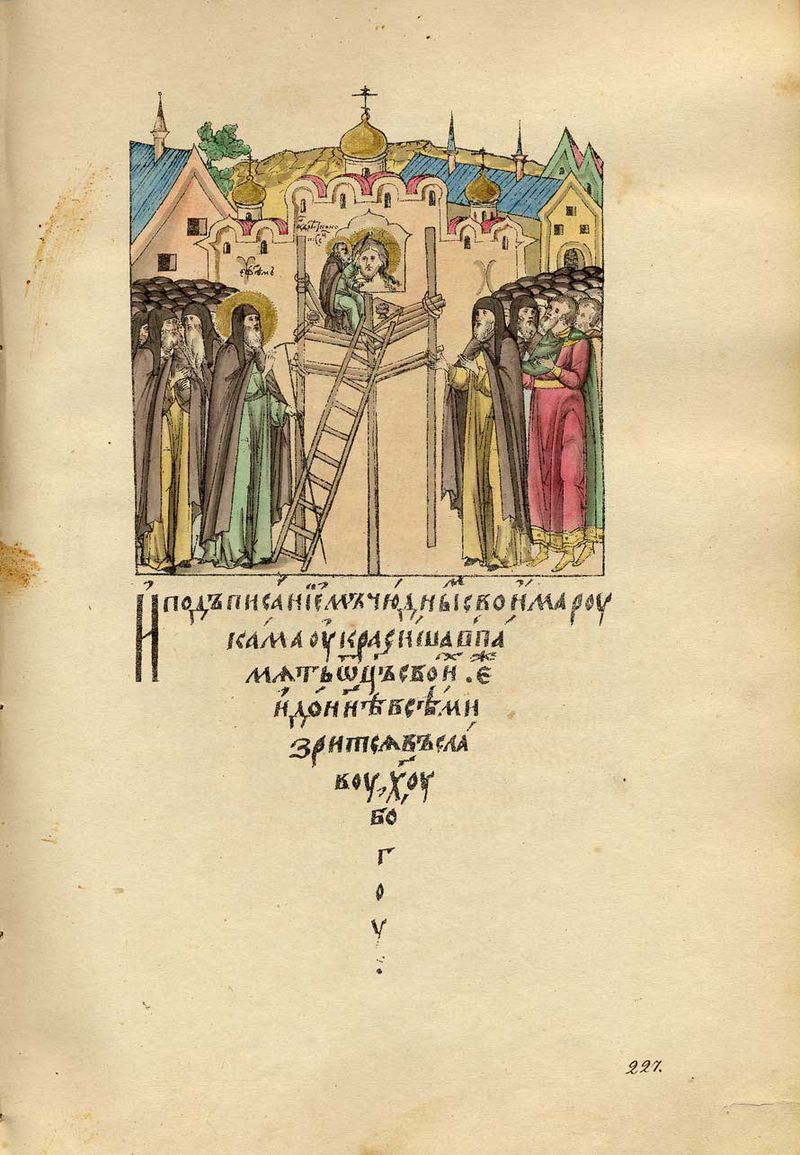 И подъписанїемъ чюдныⷨ своима роу
кама оукрасиша в̾ па
мѧть ѿц҃ъ свои́ⷯ . еⷤ
и до н҃нѣ всѣми
зритсѧ въ сла
воу, хⷭ҇оу
бо
г
о
у
:
227.